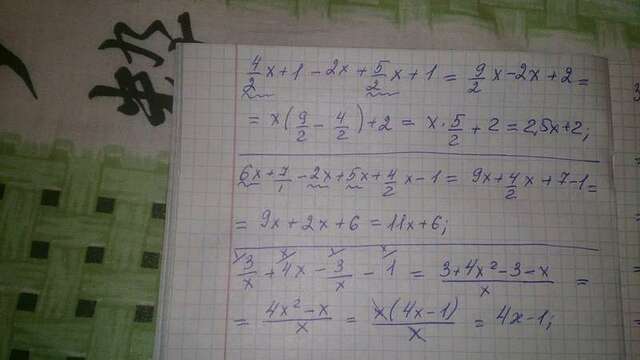 4/2 x + 1 - 2x + 5/2 x + 1 = 9/2 x - 2x + 2 =
= x(9/2 - 4/2) + 2 = x · 5/2 + 2 = 2,5x + 2;
6x + 7/1 - 2x + 5x + 4/2 x - 1 = 9x + 4/2 x + 7 - 1 =
= 9x + 2x + 6 = 11x + 6;
3/x + 4x - 3/x - 1 = (3 + 4x² - 3 - x)/x =
= (4x² - x)/x = x(4x - 1)/x = 4x - 1;